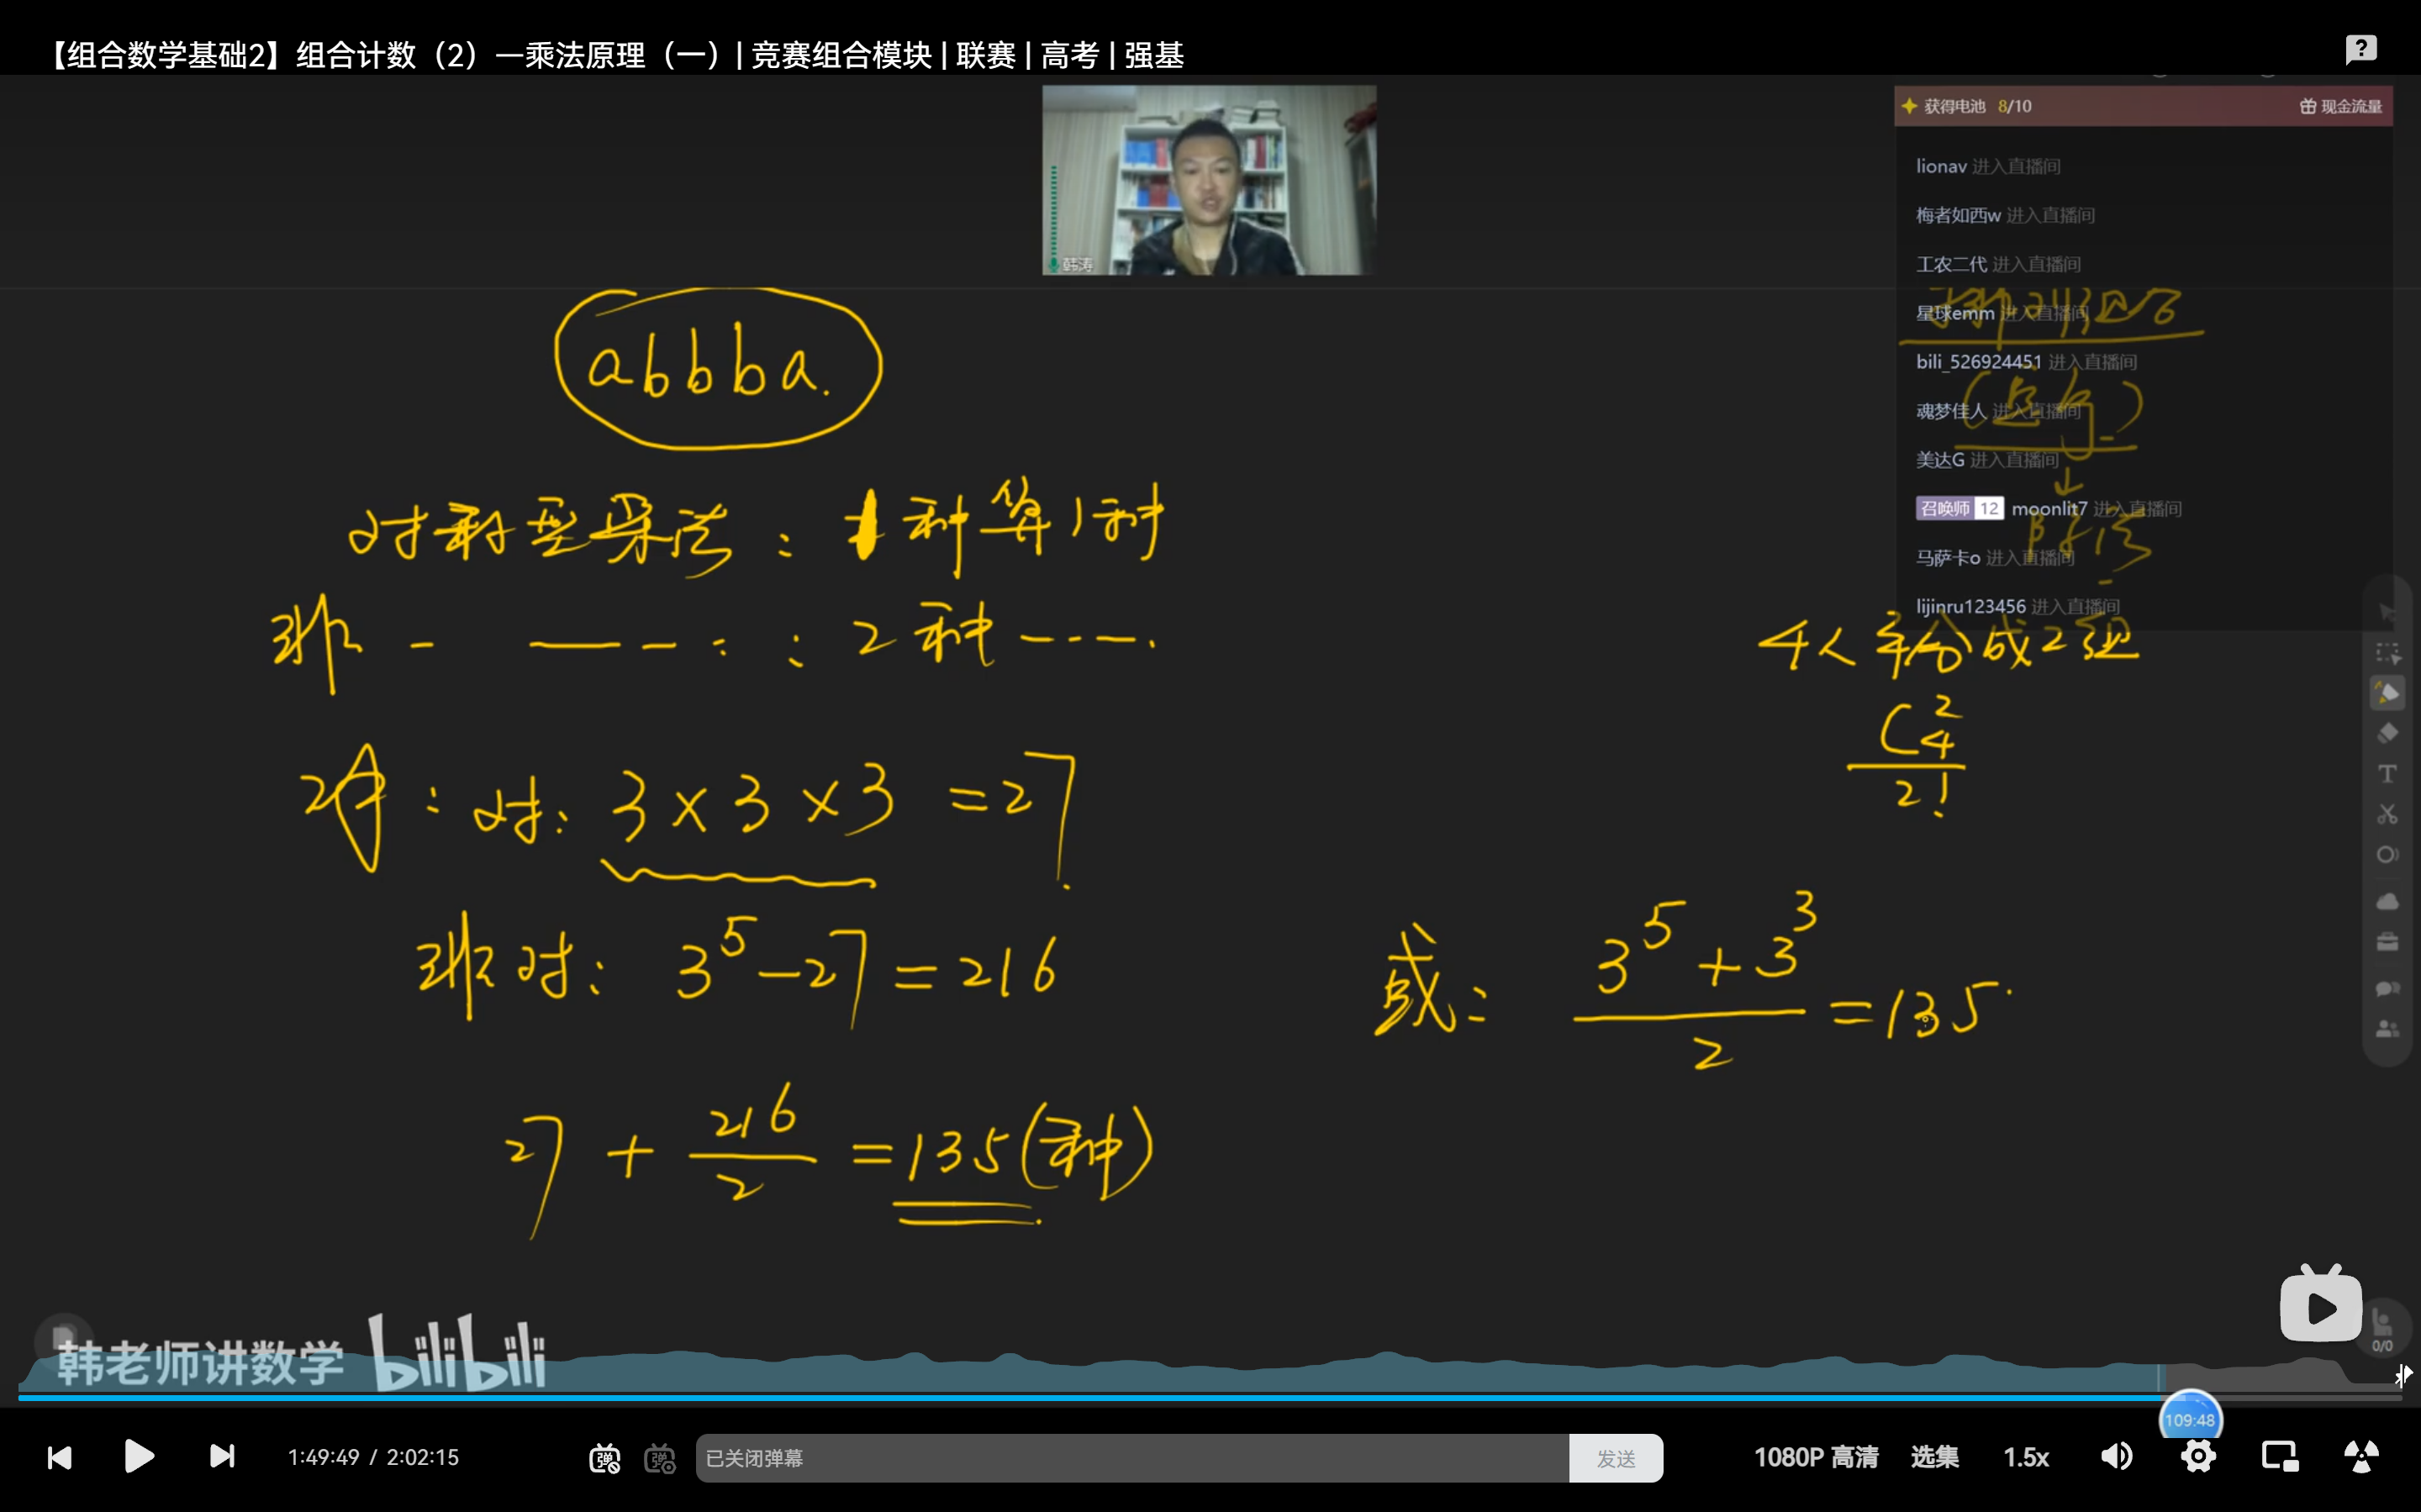 【组合数学基础2】组合计数（2）—乘法原理（一）| 竞赛组合模块 | 联赛 | 高考 | 强基
获得电池 8/10 现金流量
lionav 进入直播间
梅者如西w 进入直播间
工农二代 进入直播间
星球emm 进入直播间
bili_526924451 进入直播间
魂梦佳人 进入直播间
美达G 进入直播间
召唤师 12 moonlit7 进入直播间
马萨卡o 进入直播间
lijinru123456 进入直播间
韩涛
排列组合
abbba.
对称型染法：1种算1种
非 - —— - : : 2种 ----.
对: 3×3×3 =27.
非对: 3^5-27=216
27 + 216/2 =135(种)
4人平分成2组
C_4^2/2!
或: (3^5+3^3)/2 =135.
韩老师讲数学 bilibili
0/0
109:48
1:49:49 / 2:02:15
弹 弹
已关闭弹幕
发送
1080P 高清 选集 1.5x